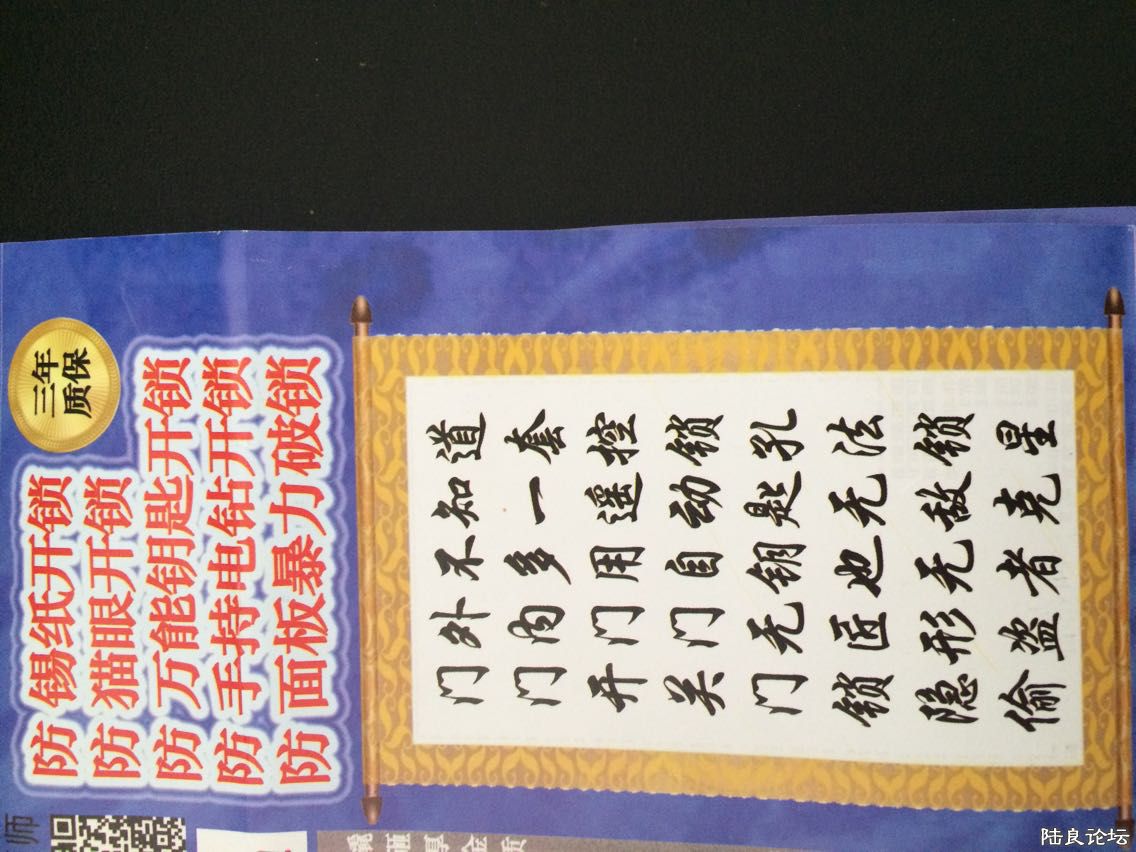 三年
质保
防锡纸开锁
防猫眼开锁
防万能钥匙开锁
防手持电钻开锁
防面板暴力破锁
门外不知道
门内多一套
开门用遥控
关门自动锁
门无钥匙孔
锁匠也无法
隐形无敌锁
偷盗者克星
师
陆良论坛